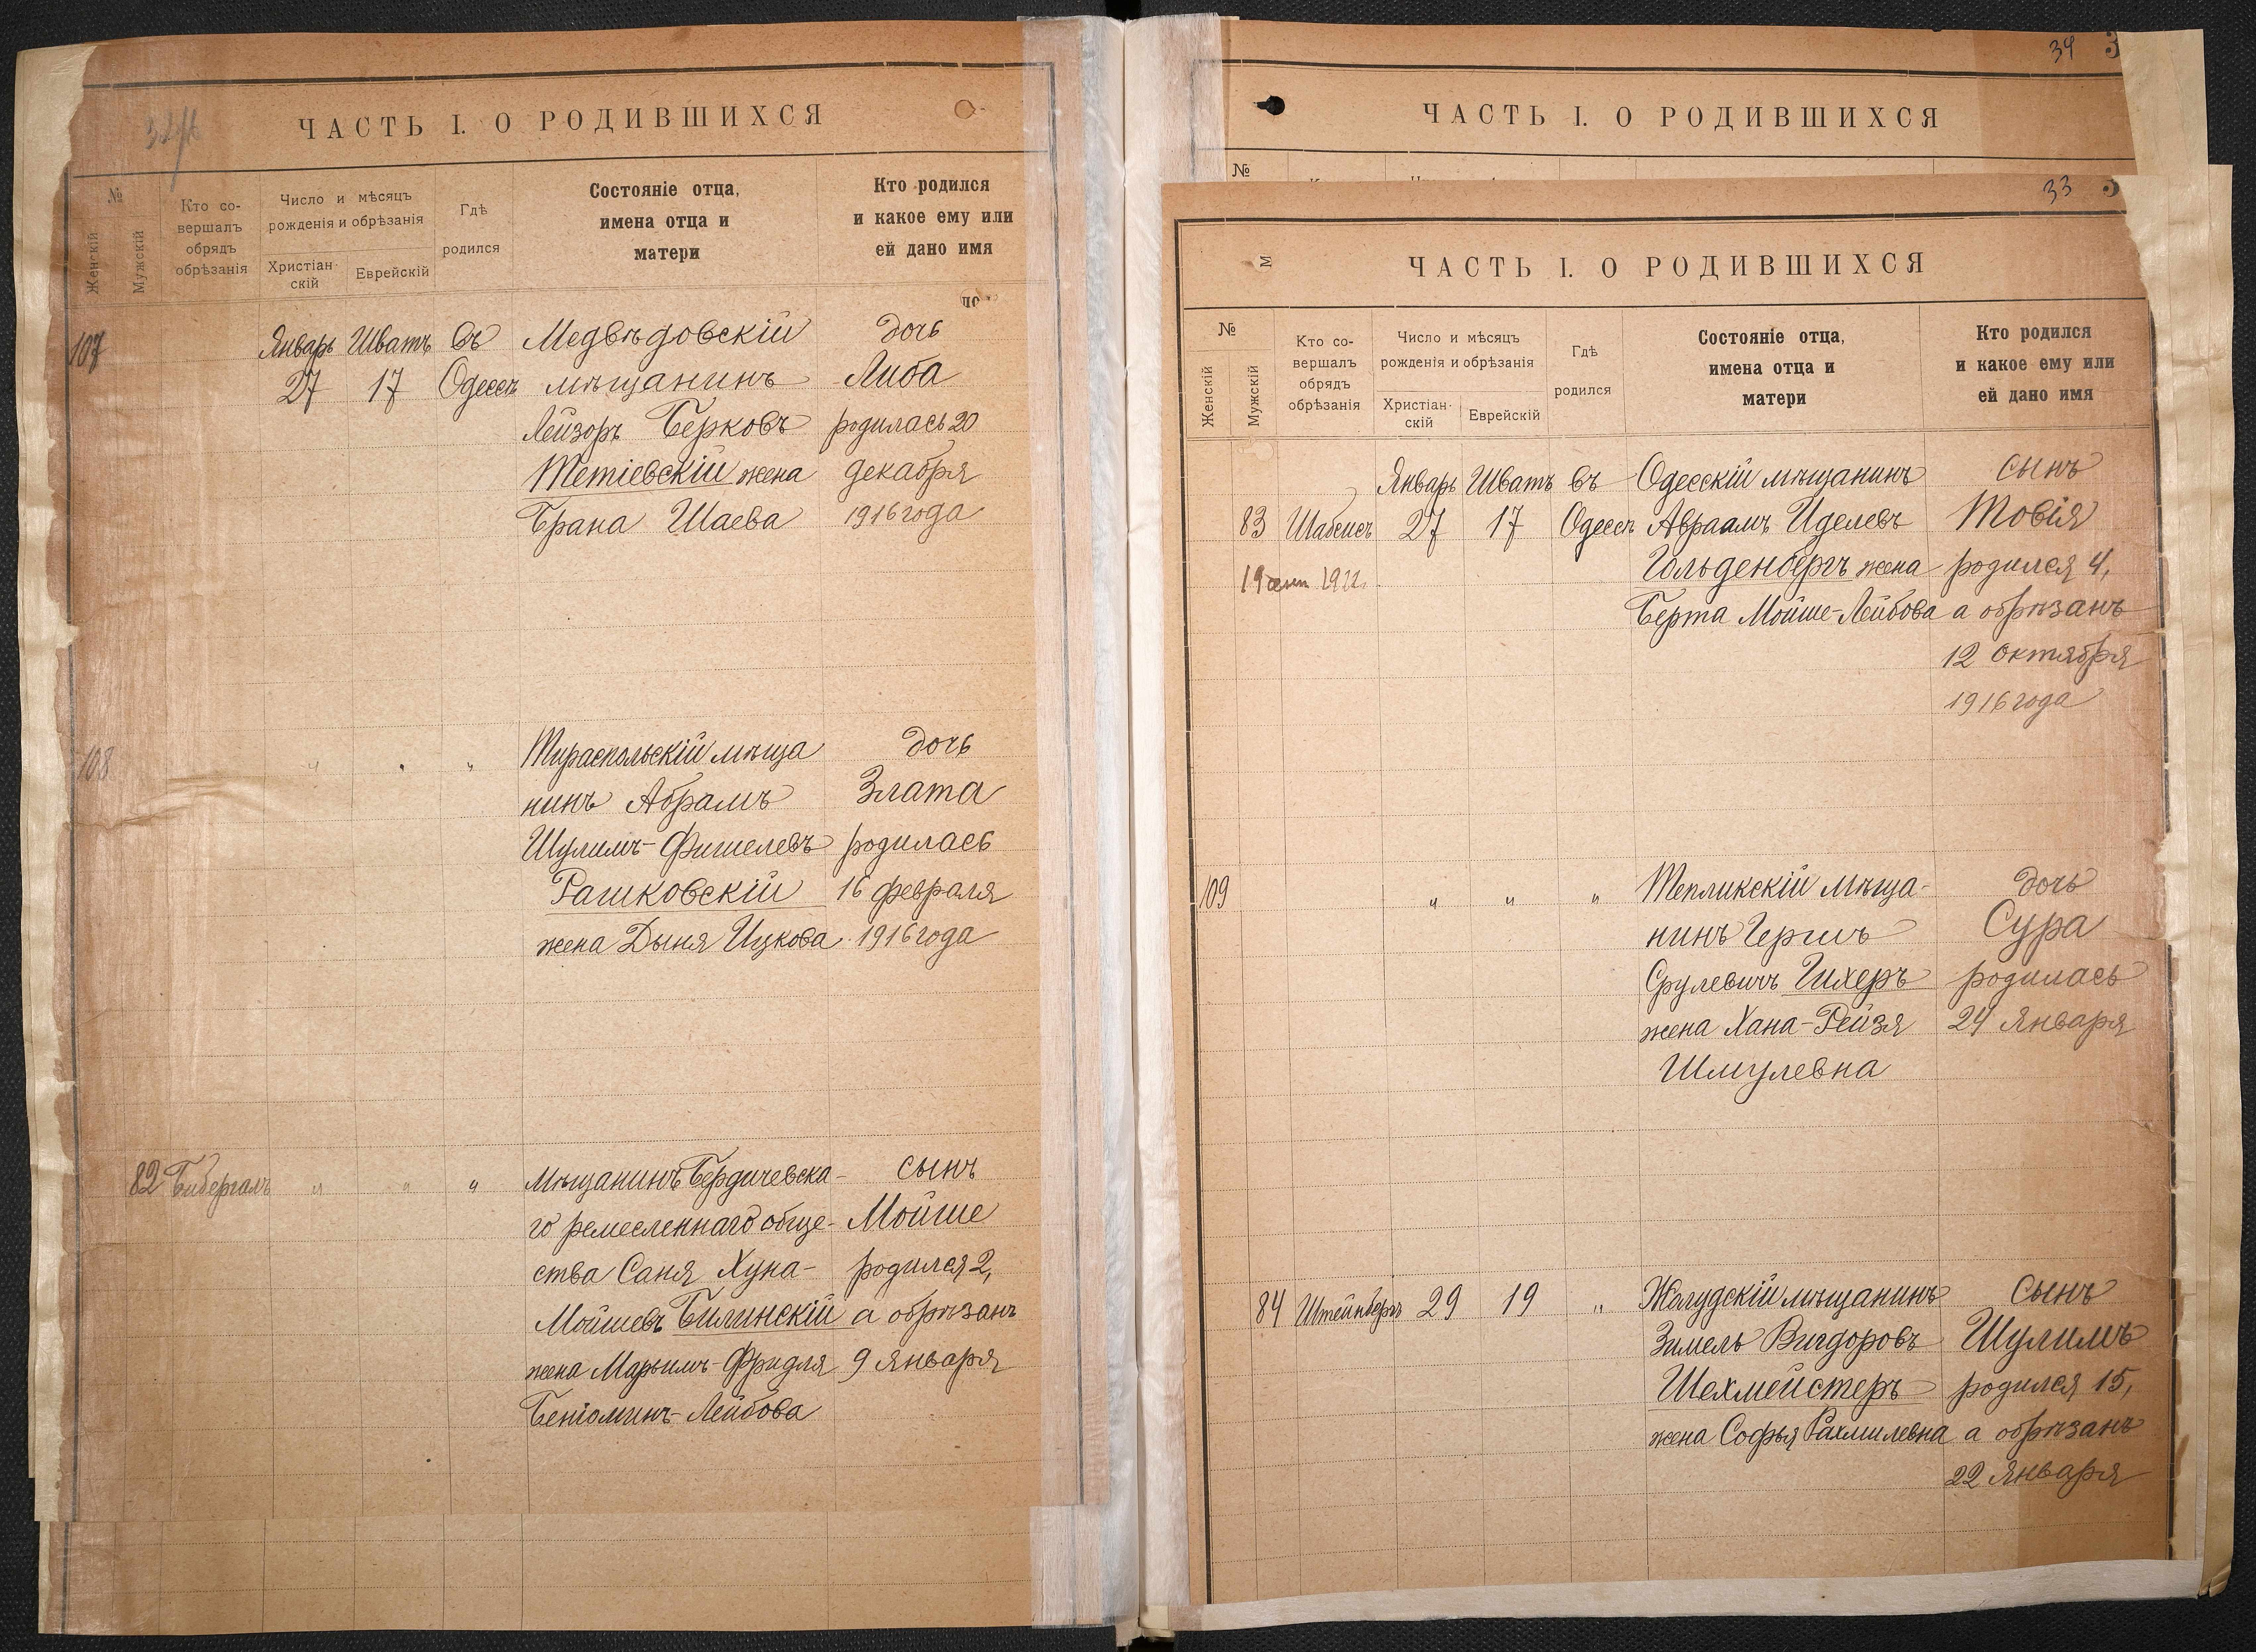 ЧАСТЬ I. О РОДИВШИХСЯ
№
Женскій
Мужскій
Кто со-
вершалъ
обрядъ
обрѣзанія
Число и мѣсяцъ
рожденія и обрѣзанія
Христіан-
скій
Еврейскій
Гдѣ
родился
Состояніе отца,
имена отца и
матери
Кто родился
и какое ему или
ей дано имя
107 Январь Шватъ въ Медвѣдовскій дочь
27 17 Одессѣ мѣщанинъ Либа
Лейзоръ Берковъ родилась 20
Тетіевскій жена декабря
Брана Шаева 1916 года
108 " " " Тираспольскій мѣща дочь
нинъ Абрамъ Злата
Шулимъ-Фишелевъ родилась
Рашковскій 16 февраля
жена Дыня Ицкова 1916 года
82 Бибергалъ " " " Мѣщанинъ Бердичевска- сынъ
го ремесленнаго обще- Мойше
ства Саня Хуна- родился 2,
Мойшевъ Билинскій а обрѣзанъ
жена Марьимъ-Фридля 9 января
Беніоминъ-Лейбова
34 3
ЧАСТЬ I. О РОДИВШИХСЯ
№
33
ЧАСТЬ I. О РОДИВШИХСЯ
М
№
Женскій
Мужскій
Кто со-
вершалъ
обрядъ
обрѣзанія
Число и мѣсяцъ
рожденія и обрѣзанія
Христіан-
скій
Еврейскій
Гдѣ
родился
Состояніе отца,
имена отца и
матери
Кто родился
и какое ему или
ей дано имя
Январь Шватъ въ Одесскій мѣщанинъ сынъ
83 Шабсисъ 27 17 Одессѣ Авраамъ Иделевъ Товія
Гольденбергъ жена родился 4,
Берта Мойше-Лейбова а обрѣзанъ
12 октября
1916 года
109 " " " Тепликскій мѣща- дочь
нинъ Гершъ Сура
Срулевичъ Гихеръ родилась
жена Хана-Рейзя 24 января
Шмулевна
84 Штейнбергъ 29 19 " Жолудскій мѣщанинъ сынъ
Замель Вигдоровъ Шулимъ
Шехмейстеръ родился 15,
жена Софья Рахмилевна а обрѣзанъ
22 января